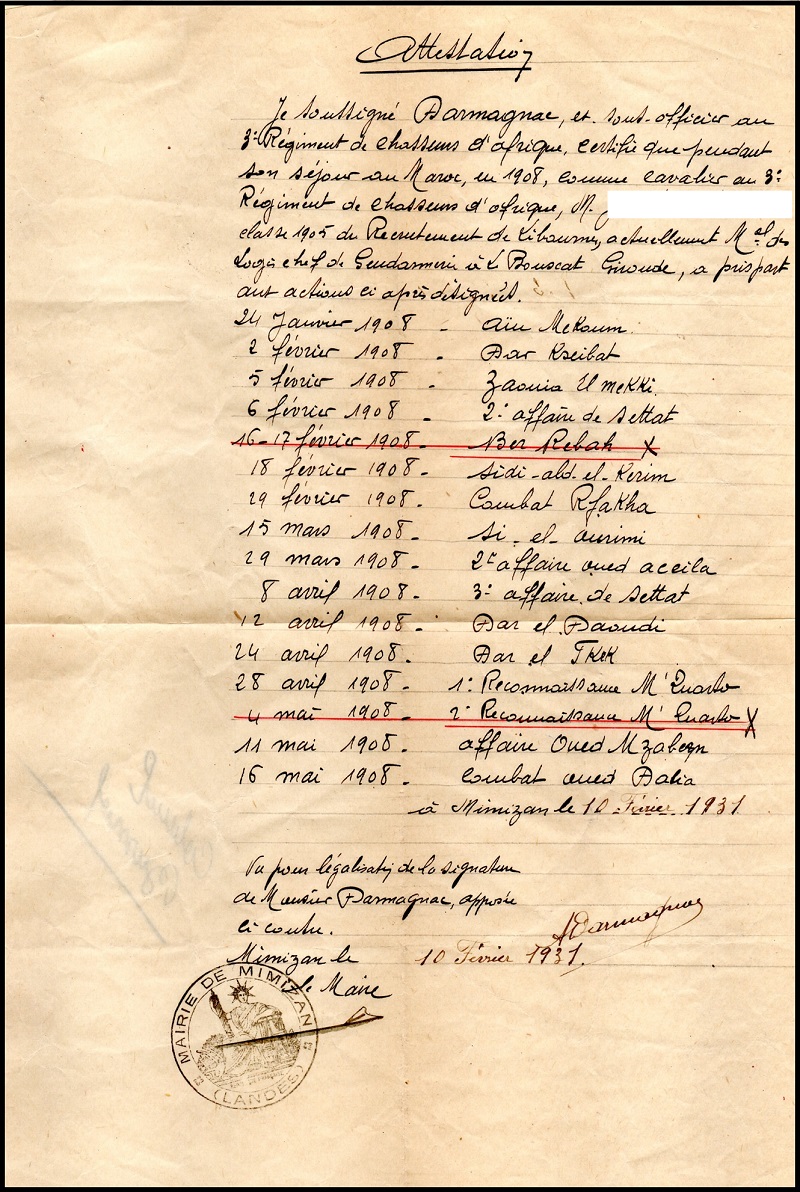 Attestation
Je soussigné Darmagnac, ex sous-officier au
3e Régiment de chasseurs d'afrique, certifie que pendant
son séjour au Maroc, en 1908, comme cavalier au 3e
Régiment de chasseurs d'afrique, M.
classe 1905 du Recrutement de Libourne, actuellement Mal des
Logis chef de Gendarmerie à Le Bouscat Gironde, a pris part
aux actions ci après désignées.
24 Janvier 1908 - Aïn Mekoum
2 février 1908 - Dar Kseibat
5 février 1908 - Zaouia El mekki
6 février 1908 - 2e affaire de Settat
16-17 février 1908 - Ber Rebah X
18 février 1908 - Sidi-abd-el-Kerim
29 février 1908 - Combat Rfakha
15 mars 1908 - Si-el-ourimi
29 mars 1908 - 2e affaire oued aceila
8 avril 1908 - 3e affaire de Settat
12 avril 1908 - Dar el Daoudi
24 avril 1908 - Dar el Tkek
28 avril 1908 - 1e Reconnaissance M'Quarto
4 mai 1908 - 2e Reconnaissance M'Quarto X
11 mai 1908 - affaire Oued Mzabern
16 mai 1908 - combat oued Dalia
à Mimizan le 10 Février 1931
Vu pour légalisation de la signature
de Monsieur Darmagnac, apposée
ci contre.
ADarmagnac
Mimizan le 10 Février 1931.
le Maire
MAIRIE DE MIMIZAN
(LANDES)